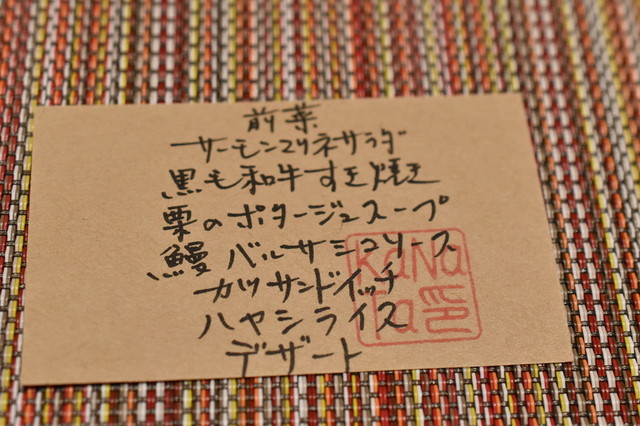 前菜
サーモンマリネサラダ
黒毛和牛すき焼き
栗のポタージュスープ
鰻バルサミコソース
カツサンドイッチ
ハヤシライス
デザート
KaNa